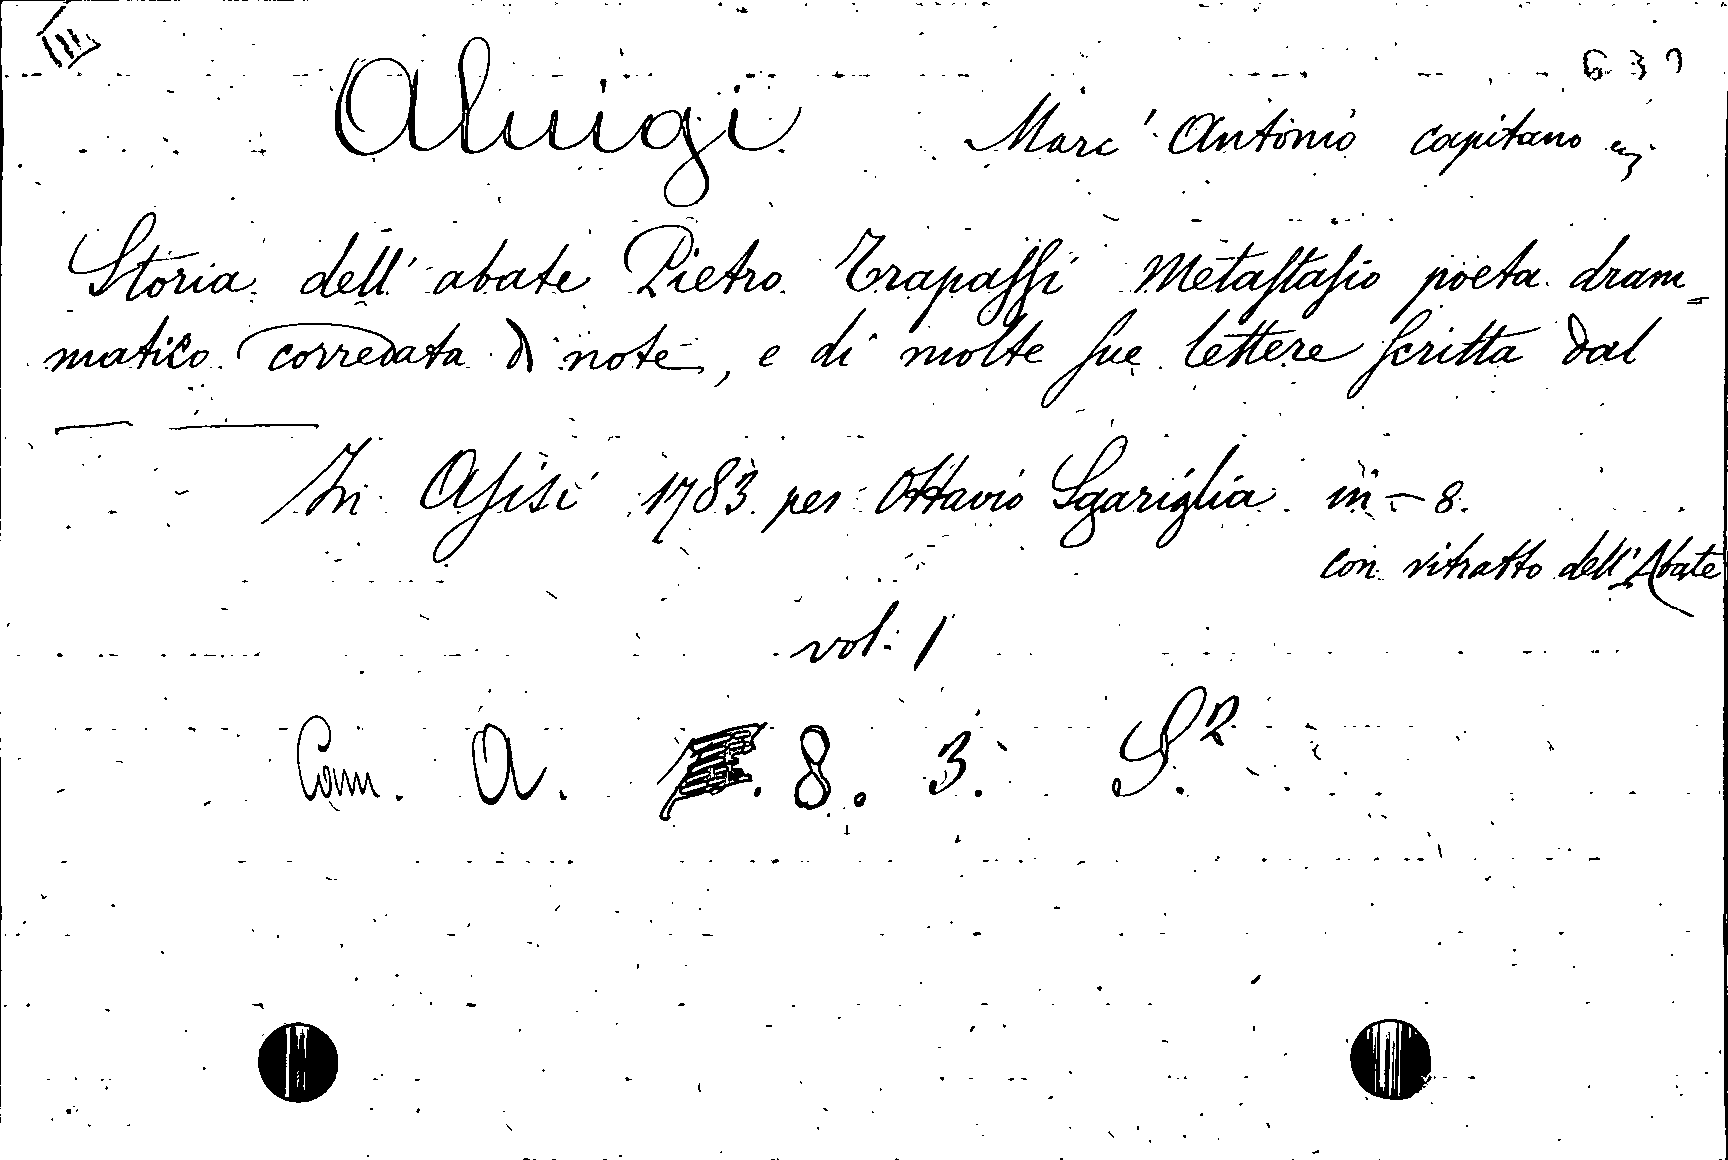 III
639
Aluigi Marc' Antonio capitano
Storia dell' abate Pietro Trapaſſi Metaſtaſio poeta dram=
matico corredata di note, e di molte ſue lettere ſcritta dal
In Aſisi 1783 per Ottavio Sgariglia in-8.
con ritratto dell'Abate
vol. 1
Cam. A. 8. 3. S.2